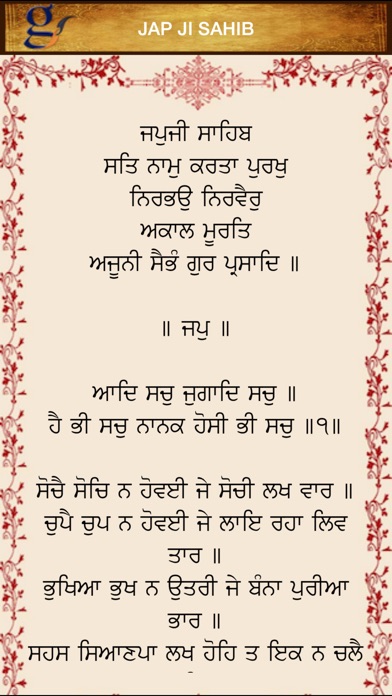 JAP JI SAHIB
ਜਪੁਜੀ ਸਾਹਿਬ
ਸਤਿ ਨਾਮੁ ਕਰਤਾ ਪੁਰਖੁ
ਨਿਰਭਉ ਨਿਰਵੈਰੁ
ਅਕਾਲ ਮੂਰਤਿ
ਅਜੂਨੀ ਸੈਭੰ ਗੁਰ ਪ੍ਰਸਾਦਿ ॥
॥ ਜਪੁ ॥
ਆਦਿ ਸਚੁ ਜੁਗਾਦਿ ਸਚੁ ॥
ਹੈ ਭੀ ਸਚੁ ਨਾਨਕ ਹੋਸੀ ਭੀ ਸਚੁ ॥੧॥
ਸੋਚੈ ਸੋਚਿ ਨ ਹੋਵਈ ਜੇ ਸੋਚੀ ਲਖ ਵਾਰ ॥
ਚੁਪੈ ਚੁਪ ਨ ਹੋਵਈ ਜੇ ਲਾਇ ਰਹਾ ਲਿਵ
ਤਾਰ ॥
ਭੁਖਿਆ ਭੁਖ ਨ ਉਤਰੀ ਜੇ ਬੰਨਾ ਪੁਰੀਆ
ਭਾਰ ॥
ਸਹਸ ਸਿਆਣਪਾ ਲਖ ਹੋਹਿ ਤ ਇਕ ਨ ਚਲੈ